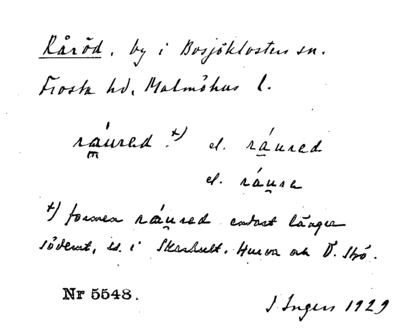 Råröd, by i Bosjöklosters sn.
Frosta hd, Malmöhus l.
ráured. x) el. ráured
el. ráure
x) formen ráured endast längre
söderut, ss. i Skarhult, Hurva och Ö. Strö.
Nr 5548.
J Ingers 1929